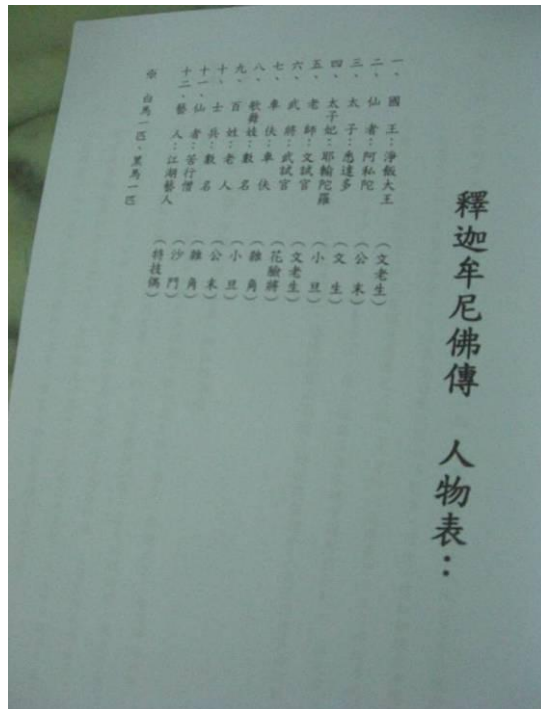 釋迦牟尼佛傳 人物表：
一、國 王：淨飯大王 （文老生）
二、仙 者：阿私陀 （公 末）
三、太 子：悉達多 （文 生）
四、太子妃：耶輸陀羅 （小 旦）
五、老 師：文試官 （文老生）
六、武 將：武試官 （花臉將）
七、車 伕：車 伕 （雜 角）
八、歌舞妓：數 名 （小 旦）
九、百 姓：老 人 （公 末）
十、士 兵：數 名 （雜 角）
十一、仙 者：苦行僧 （沙 門）
十二、藝 人：江湖藝人 （特技偶）
※ 白馬一匹、黑馬一匹